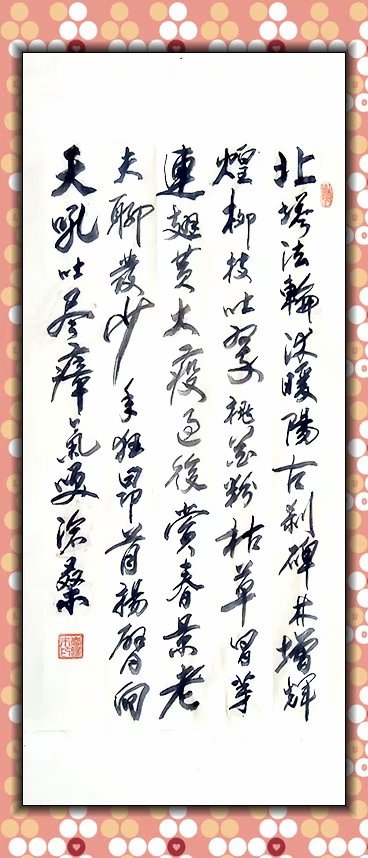 北塔法輪沐暖陽古刹碑林增輝
煌柳枝吐翠桃花粉枯草冒芽
連翹黄大疫過後賞春景老
夫聊發少年狂昂首揚臂向
天吼吐尽瘴氣滄桑